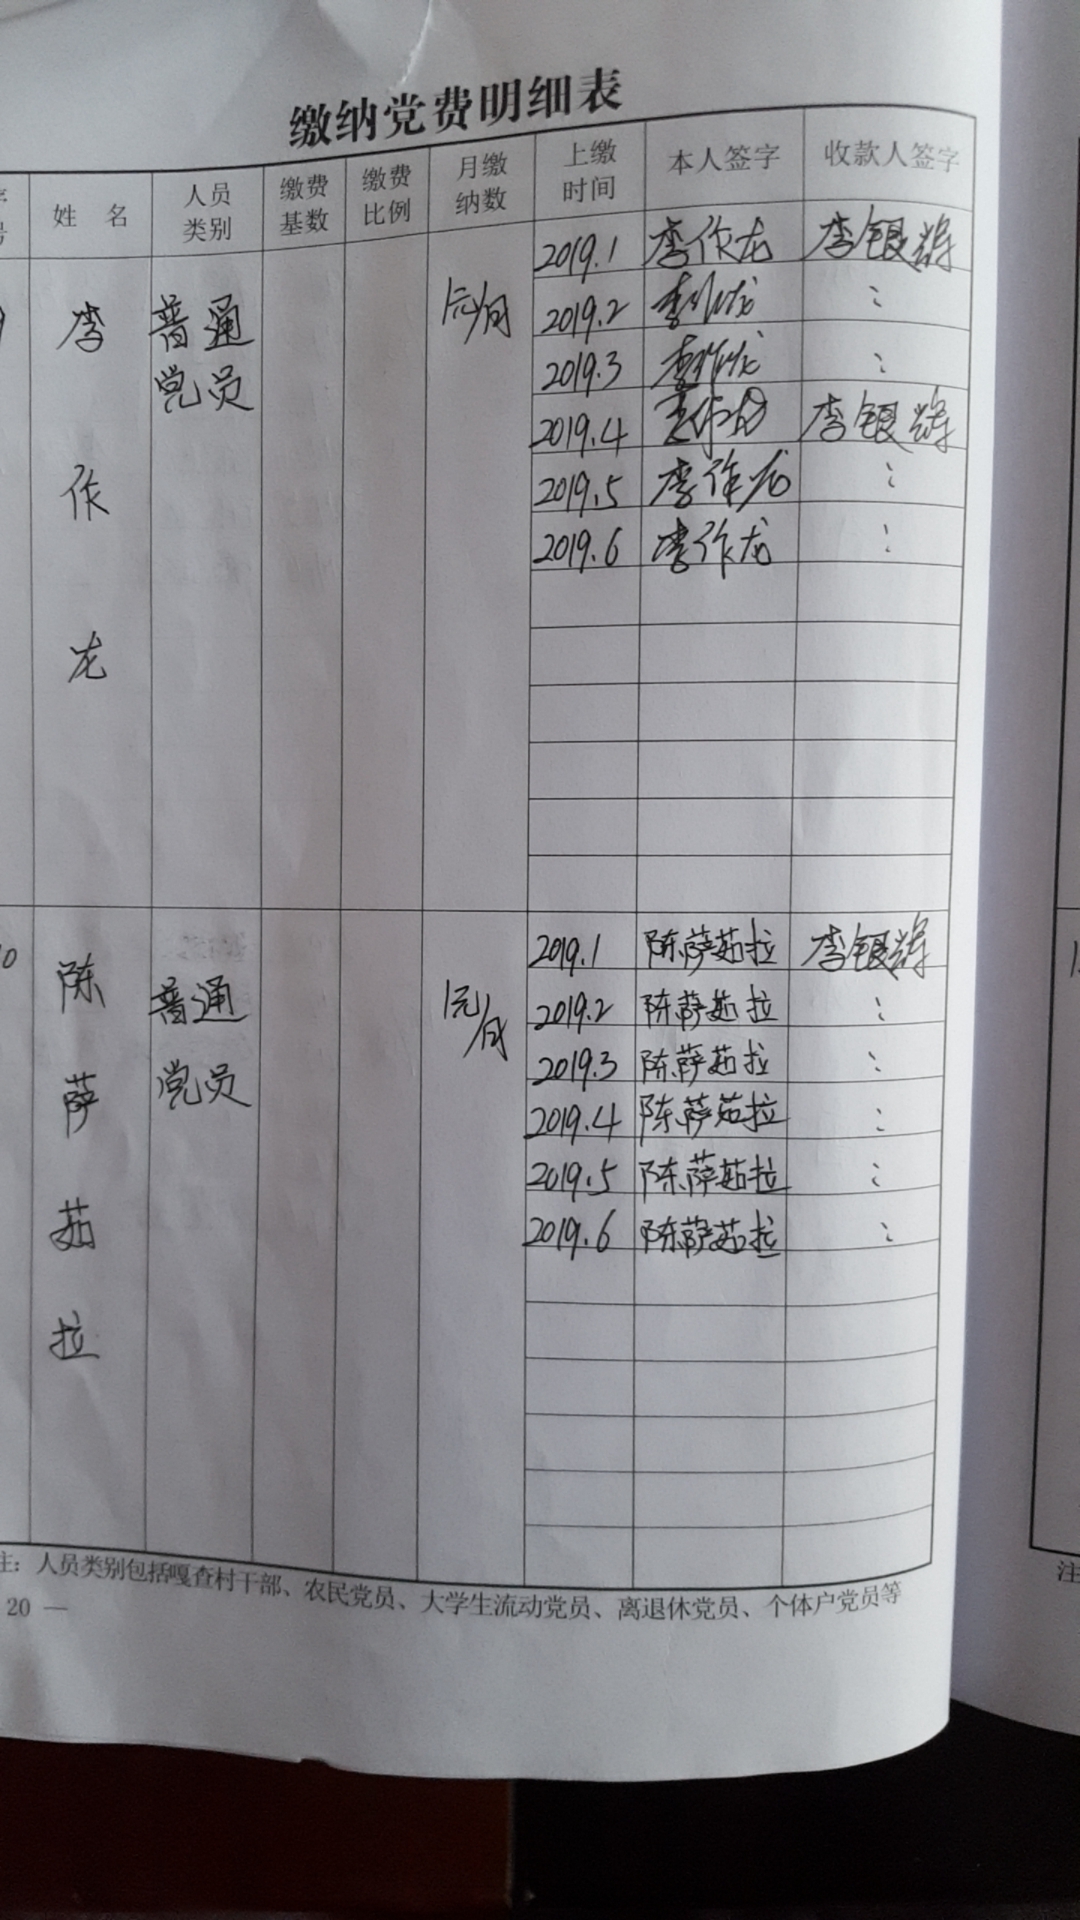 缴纳党费明细表
姓 名 人员类别 缴费基数 缴费比例 月缴纳数 上缴时间 本人签字 收款人签字
李作龙 普通党员 1元/月 2019.1 李作龙 李银辉
2019.2 李作龙 :
2019.3 李作龙 :
2019.4 李银辉
2019.5 李作龙 :
2019.6 李作龙 :
陈萨茹拉 普通党员 1元/月 2019.1 陈萨茹拉 李银辉
2019.2 陈萨茹拉 :
2019.3 陈萨茹拉 :
2019.4 陈萨茹拉 :
2019.5 陈萨茹拉 :
2019.6 陈萨茹拉 :
注：人员类别包括嘎查村干部、农民党员、大学生流动党员、离退休党员、个体户党员等
20 —
注